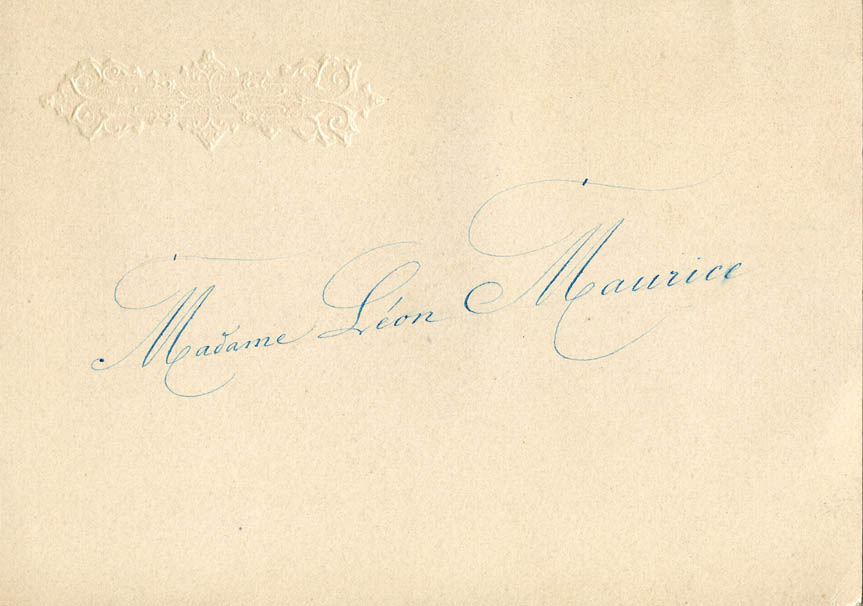 Madame Léon Maurice